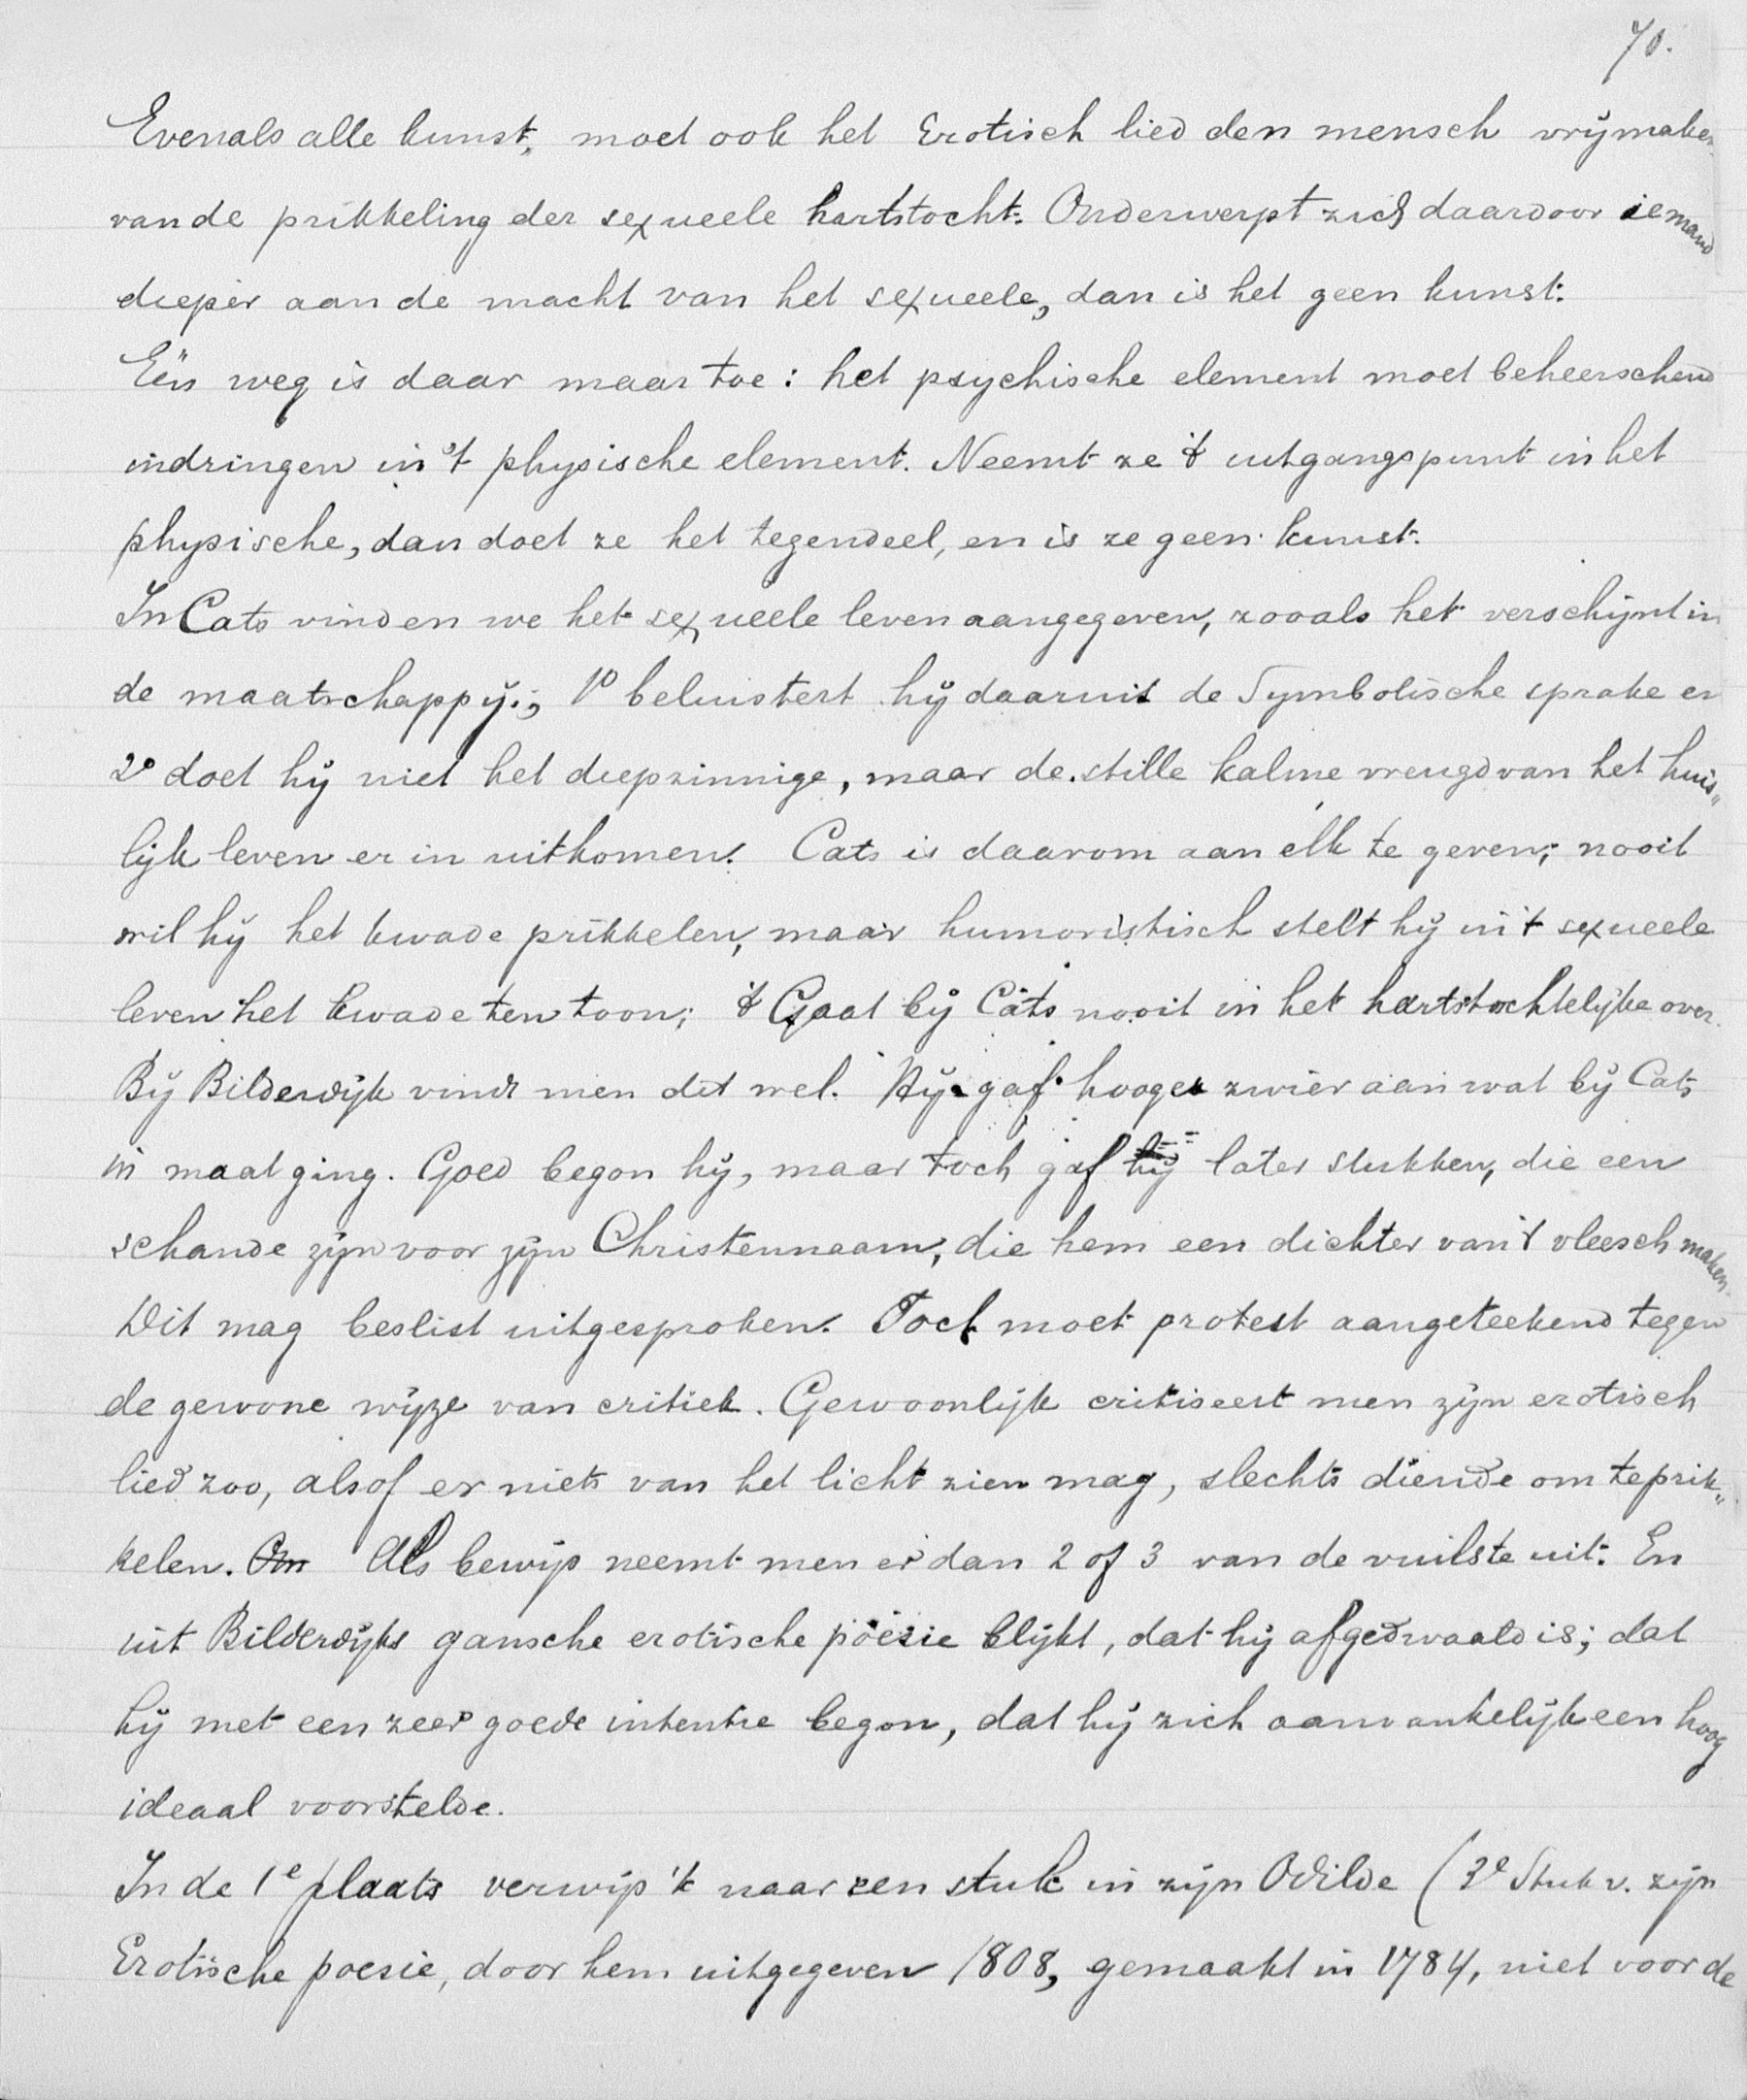 70.
Evenals alle kunst, moet ook het Erotisch lied den mensch vrijmaken
van de prikkeling der sexueele hartstocht. Onderwerpt zich daardoor iemand
dieper aan de macht van het sexueele, dan is het geen kunst.
Eén weg is daar maar toe: het psychische element moet beheerschend
indringen in 't physische element. Neemt ze 't uitgangspunt in het
physische, dan doet ze het tegendeel, en is ze geen kunst.
In Cats vinden we het sexueele leven aangegeven, zooals het verschijnt in
de maatschappij; 1º beluistert hij daaruit de Symbolische sprake en
2º doet hij niet het diepzinnige, maar de stille kalme vreugd van het huis„
lijk leven er in uitkomen. Cats is daarom aan elk te geven; nooit
wil hij het kwade prikkelen, maar humoristisch stelt hij in 't sexueele
leven het kwade ten toon; 't Gaat bij Cats nooit in het hartstochtelijke over.
Bij Bilderdijk vindt men dit wel. Hij gaf hooger zwier aan wat bij Cats
in maat ging. Goed begon hij, maar toch gaf hij later stukken, die een
schande zijn voor zijn Christennaam, die hem een dichter van 't vleesch maken.
Dit mag beslist uitgesproken. Toch moet protest aangeteekend tegen
de gewone wijze van critiek. Gewoonlijk critiseert men zijn erotisch
lied zoo, alsof er niets van het licht zien mag, slechts diende om te prik„
kelen. Om Als bewijs neemt men er dan 2 of 3 van de vuilste uit. En
uit Bilderdijks gansche erotische poëzie blijkt, dat hij afgedwaald is; dat
hij met een zeer goede intentie begon, dat hij zich aanvankelijk een hoog
ideaal voorstelde.
In de 1e plaats verwijs 'k naar een stuk in zijn Odilde (3e Stuk v. zijn
Erotische poesie, door hem uitgegeven 1808, gemaakt in 1784, niet voor de